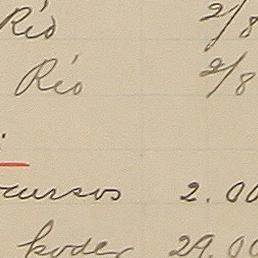 Río 2/8
Río 2/8
cursos 2.00
poder 29.00